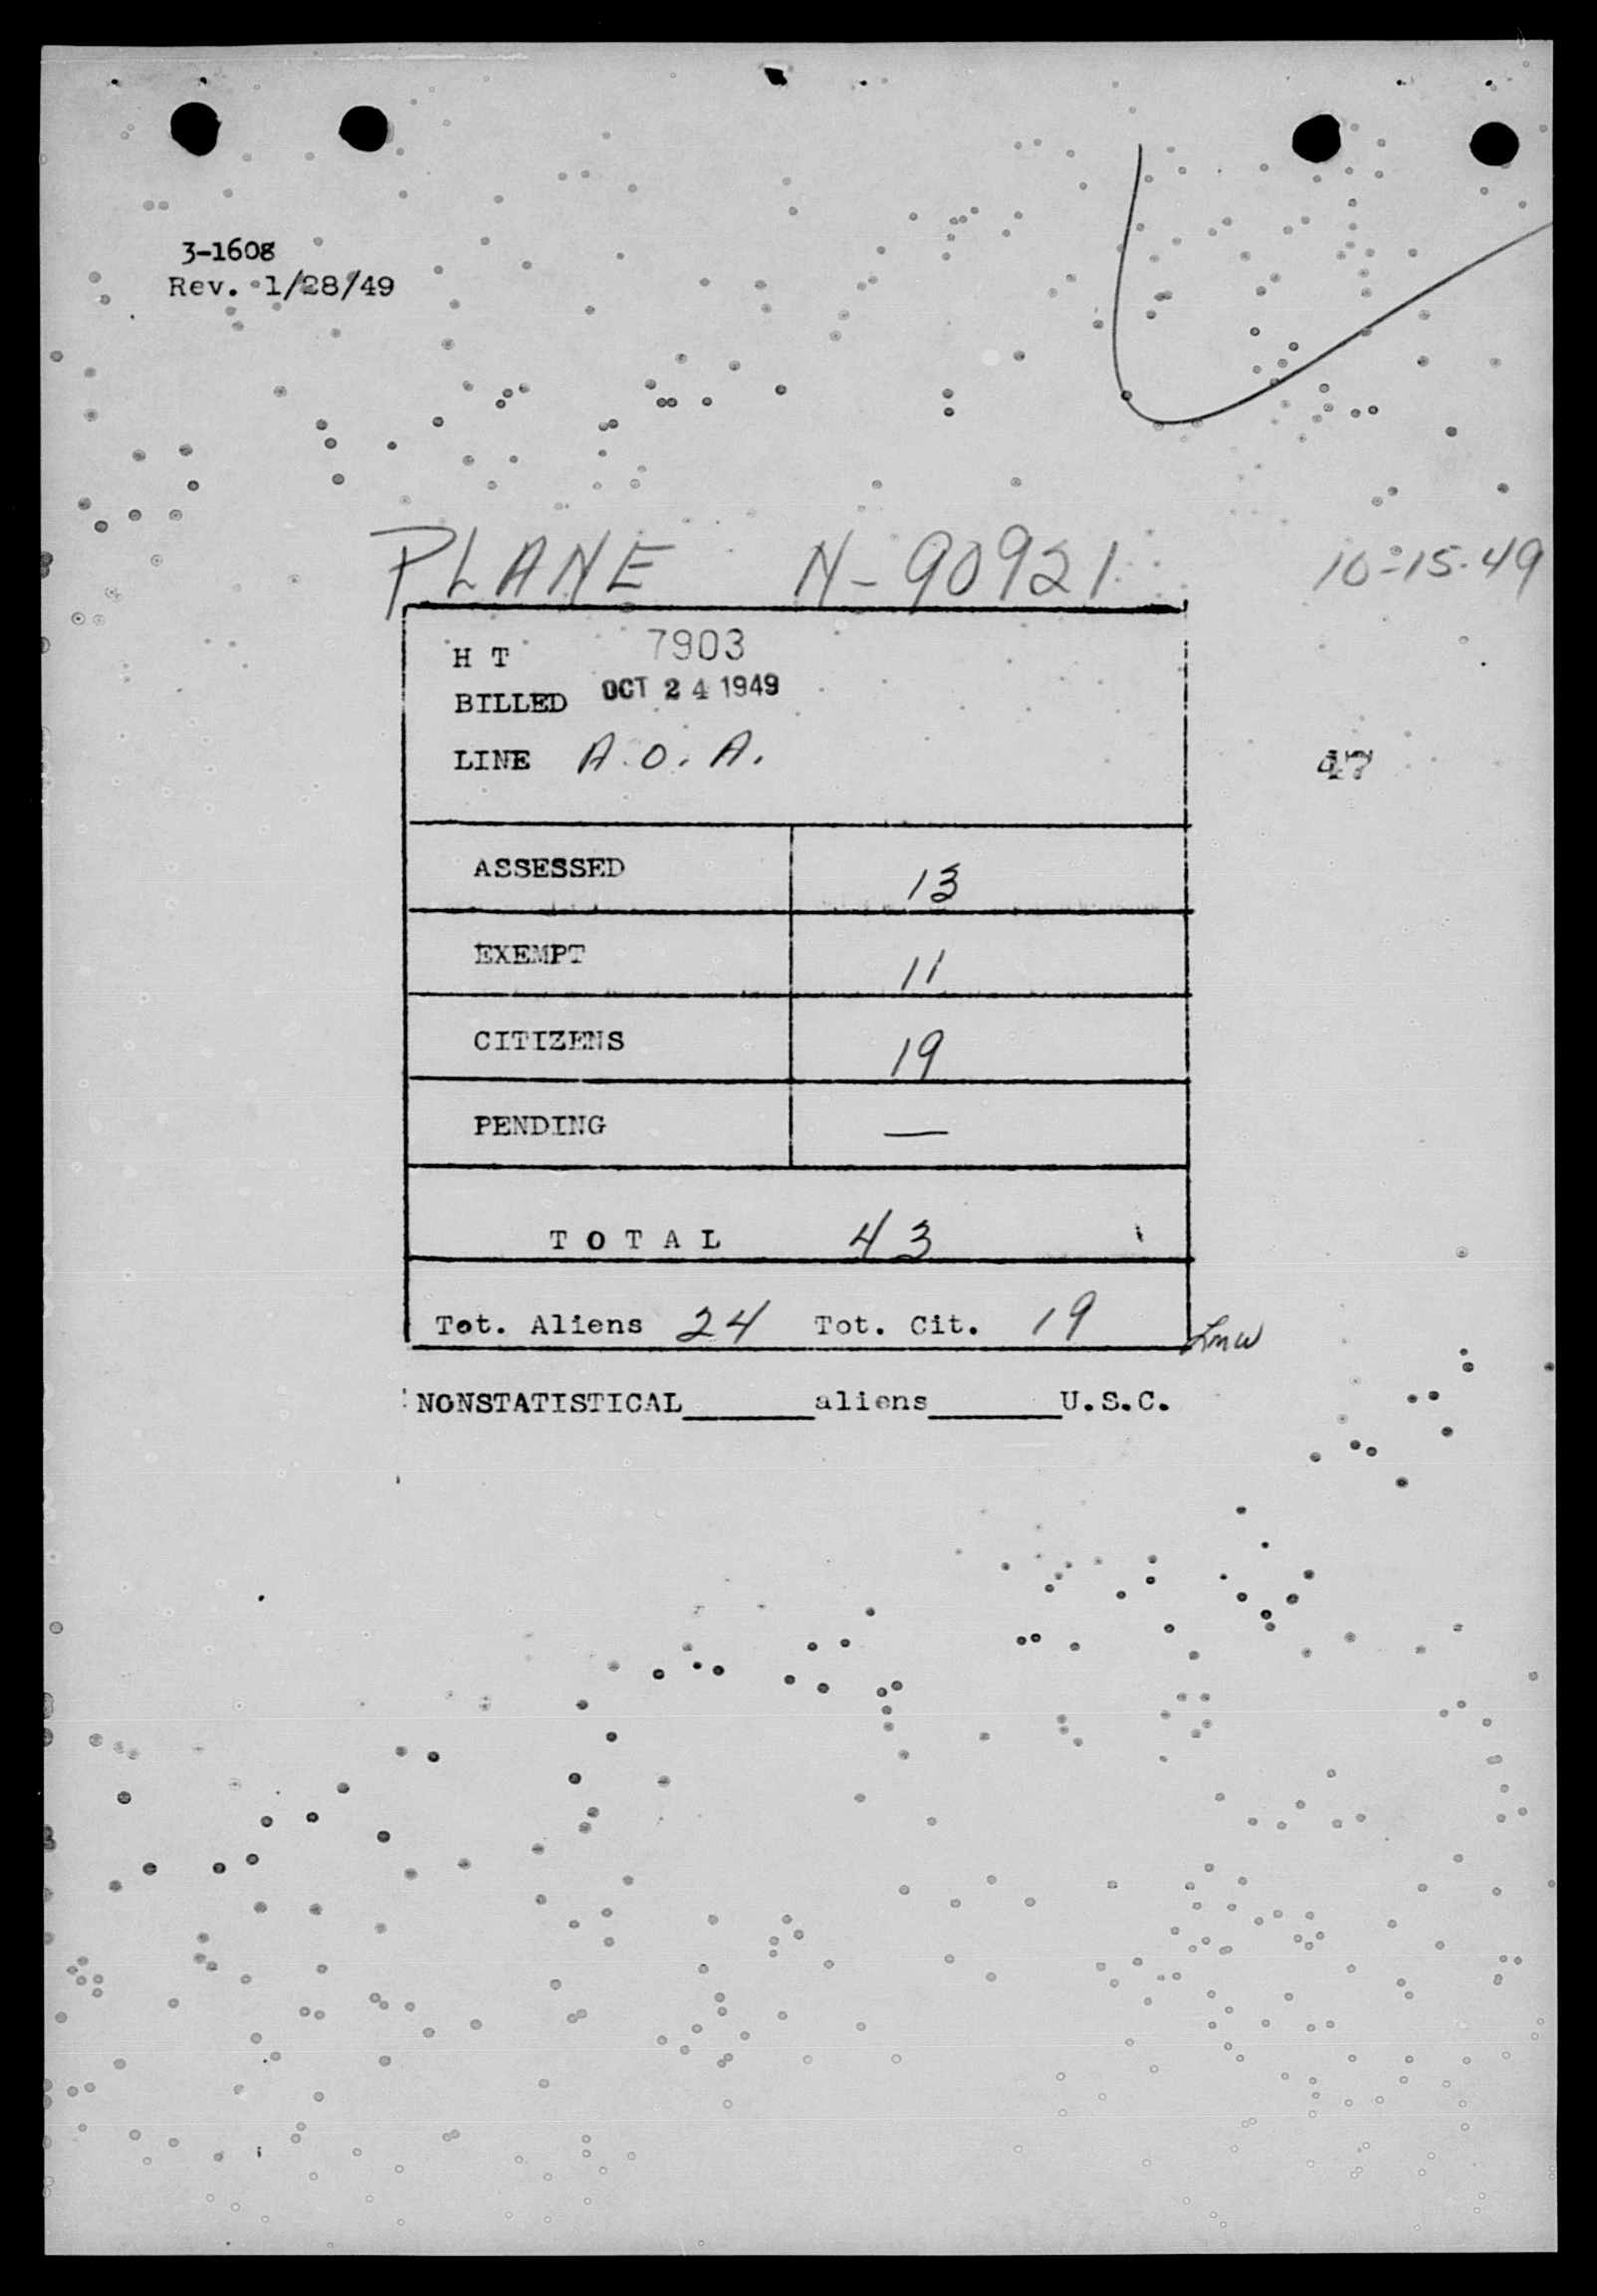 3-1608
Rev. 1/28/49
PLANE N-90921 10-15-49
H T 7903
BILLED OCT 24 1949
LINE A.O.A.
47
ASSESSED 13
EXEMPT 11
CITIZENS 19
PENDING —
TOTAL 43
Tot. Aliens 24 Tot. Cit. 19
NONSTATISTICAL______aliens______U.S.C.